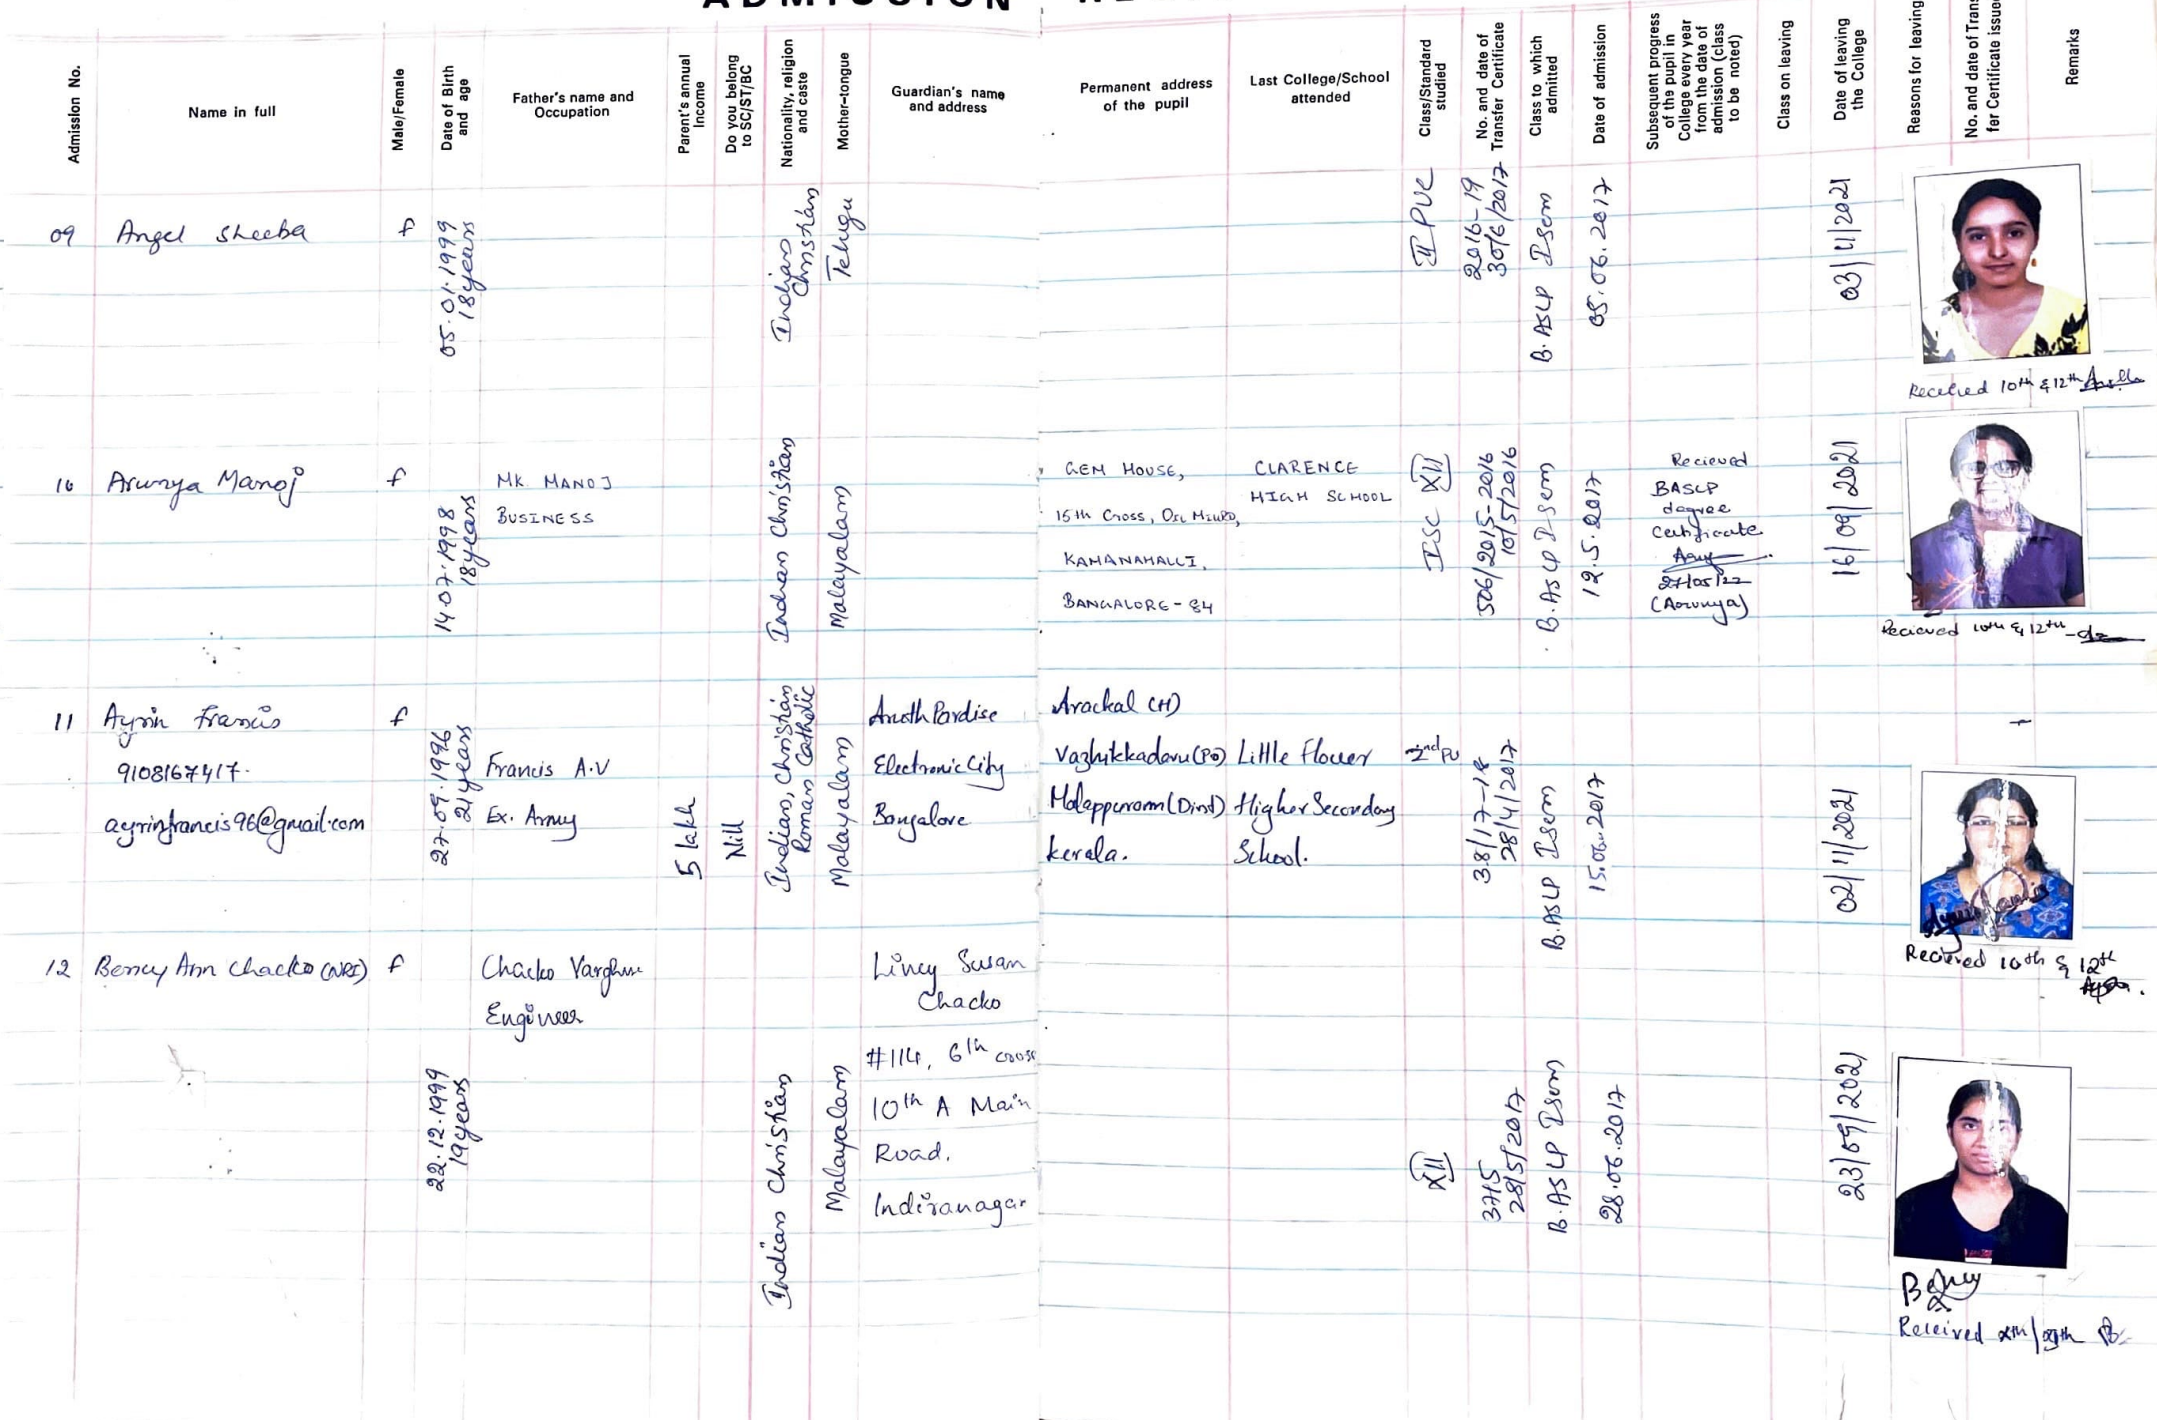 ADMISSION
Admission No.
Name in full
Male/Female
Date of Birth
and age
Father's name and
Occupation
Parent's annual
Income
Do you belong
to SC/ST/BC
Nationality, religion
and caste
Mother-tongue
Guardian's name
and address
Permanent address
of the pupil
Last College/School
attended
Class/Standard
studied
No. and date of
Transfer Certificate
Class to which
admitted
Date of admission
Subsequent progress
of the pupil in
College every year
from the date of
admission (class
to be noted)
Class on leaving
Date of leaving
the College
Reasons for leaving
No. and date of Trans
fer Certificate issued
Remarks
09
Angel Sheeba
f
05.01.1999
18 years
Indian
Christian
Telugu
II PUC
2016-19
30/6/2017
B.ASLP I Sem
05.06.2017
03/11/2021
Received 10th & 12th
10
Arunya Manoj
f
14.07.1998
18 years
MK MANOJ
BUSINESS
Indian Christian
Malayalam
GEM HOUSE,
15th Cross,
KAMANAHALLI,
BANGALORE - 84
CLARENCE
HIGH SCHOOL
ISC XII
506/2015-2016
10/5/2016
B.ASLP I Sem
12.5.2017
Recieved
BASLP
degree
certificate
27/05/22
(Arunya)
16/09/2021
Recieved 10th & 12th
11
Ayrin Francis
9108167417.
ayrinfrancis96@gmail.com
f
27.09.1996
21 years
Francis A.V
Ex. Army
5 lakh
Nill
Indian, Christian
Roman Catholic
Malayalam
Pardise
Electronic City
Bangalore
Arackal (H)
Vazhikkadavu (PO)
Malappuram (Dist)
kerala.
Little Flower
Higher Secondary
School.
2nd PU
38/17-18
28/4/2017
B.ASLP I Sem
15.06.2017
02/11/2021
Recieved 10th & 12th
12
Bency Ann Chacko (NRI)
f
22.12.1999
19 years
Chacko Varghese
Engineer
Indian Christian
Malayalam
Lincy Susan
Chacko
#114, 6th cross
10th A Main
Road.
Indiranagar
XII
3715
28/5/2017
B.ASLP I Sem
28.06.2017
23/09/2021
Bency
Received xth/